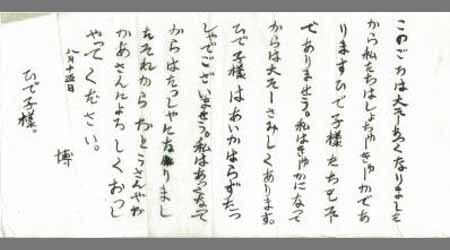 このごろは大そーあつくなりました
から私たちはしょちゅきゅかであ
りますひで子様たちもそー
でありませう。私はきゅかになって
からは大そーさみしくあります。
ひで子様はあいかはらずたっ
しゃでございませう。私はあつくなって
からはたっしゃになりまし
たそれからおとうさんやお
かあさんによろしくおっし
やってください。
八月十五日
博
ひで子様。